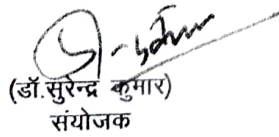 (डॉ.सुरेन्द्र कुमार)
संयोजक